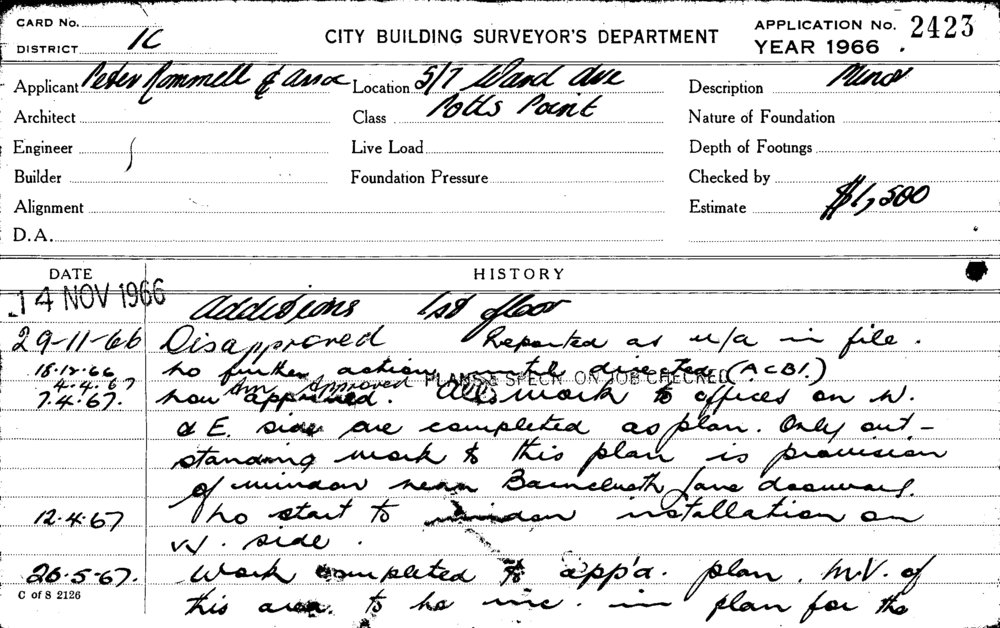 CARD No.
DISTRICT 1C
CITY BUILDING SURVEYOR'S DEPARTMENT
APPLICATION No. 2423
YEAR 1966 .
Applicant Peter Rommell & Assoc Location 5/7 Ward Ave Description Minor
Architect Class Potts Point Nature of Foundation
Engineer Live Load Depth of Footings
Builder Foundation Pressure Checked by
Alignment Estimate $1,500
D.A.
DATE HISTORY
14 NOV 1966 Additions 1st floor
29-11-66 Disapproved Reported as u/a in file.
15.12.66 No further action until directed (ACBI.)
4.4.67 Approved PLANS & SPECN ON JOB CHECKED
7.4.67. now approved. All work to offices on N.
& E. side are completed as plan. Only out-
standing work to this plan is provision
of window near Barncleuth Lane doorway.
12.4.67 No start to window installation on
W. side.
26.5.67. Work completed to app'd. plan. M.V. of
C of S 2126
this area to be inc. in plan for the